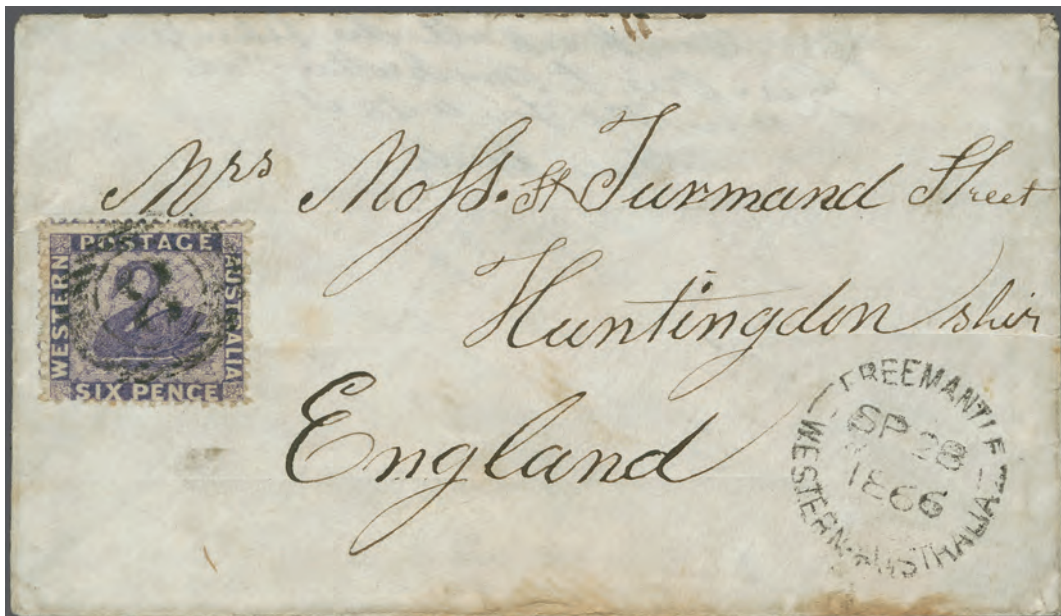 Mrs Moss. St Turmand Street
Huntingdon shir
England
POSTAGE
WESTERN
AUSTRALIA
SIX PENCE
2
FREEMANTLE
SP 28
1866
WESTERN-AUSTRALIA